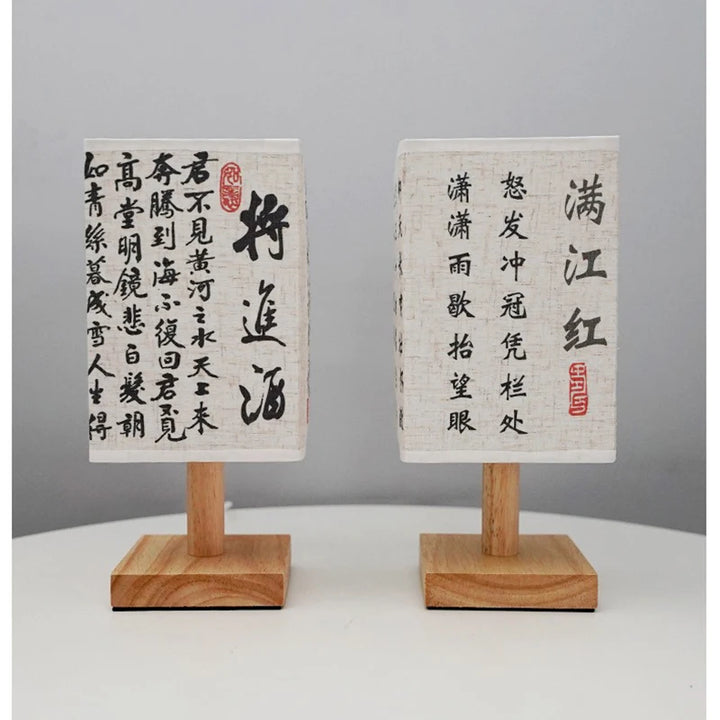 将進酒
君不見黄河之水天上来
奔騰到海不復回君不見
高堂明鏡悲白髮朝
如青絲暮成雪人生得
满江红
怒发冲冠凭栏处
潇潇雨歇抬望眼